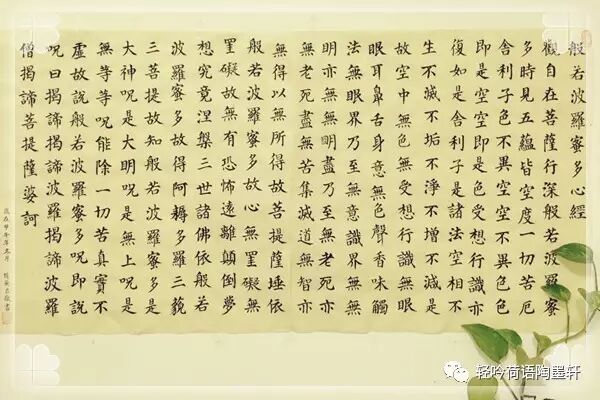 般若波羅蜜多心經
觀自在菩薩行深般若波羅蜜
多時見五蘊皆空度一切苦厄
舍利子色不異空空不異色色
即是空空即是色受想行識亦
復如是舍利子是諸法空相不
生不滅不垢不淨不增不減是
故空中無色無受想行識無眼
眼耳鼻舌身意無色聲香味觸
法無眼界乃至無意識界無無
明亦無無明盡乃至無老死亦
無老死盡無苦集滅道無智亦
無得以無所得故菩提薩埵依
般若波羅蜜多故心無罣礙無
罣礙故無有恐怖遠離顛倒夢
想究竟涅槃三世諸佛依般若
波羅蜜多故得阿耨多羅三藐
三菩提故知般若波羅蜜多是
大神呪是大明呪是無上呪是
無等等呪能除一切苦真實不
虛故說般若波羅蜜多呪即說
呪曰揭諦揭諦波羅揭諦波羅
僧揭諦菩提薩婆訶
歲在甲午年五月
轻吟荷语陶墨轩